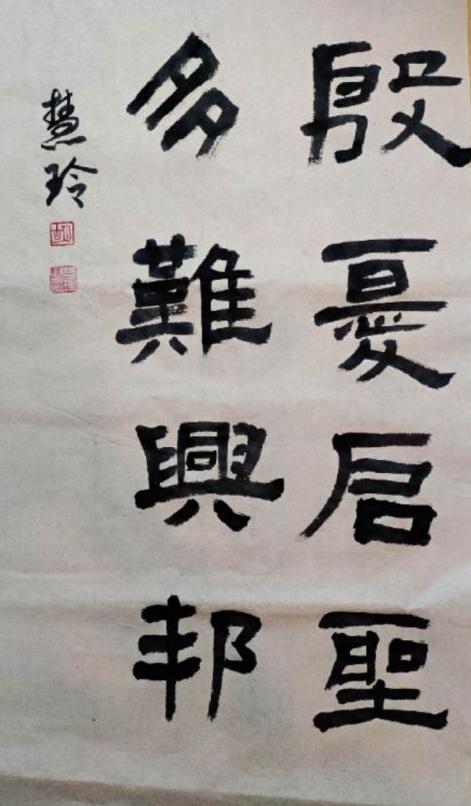 殷憂启聖
多難興邦
慧玲